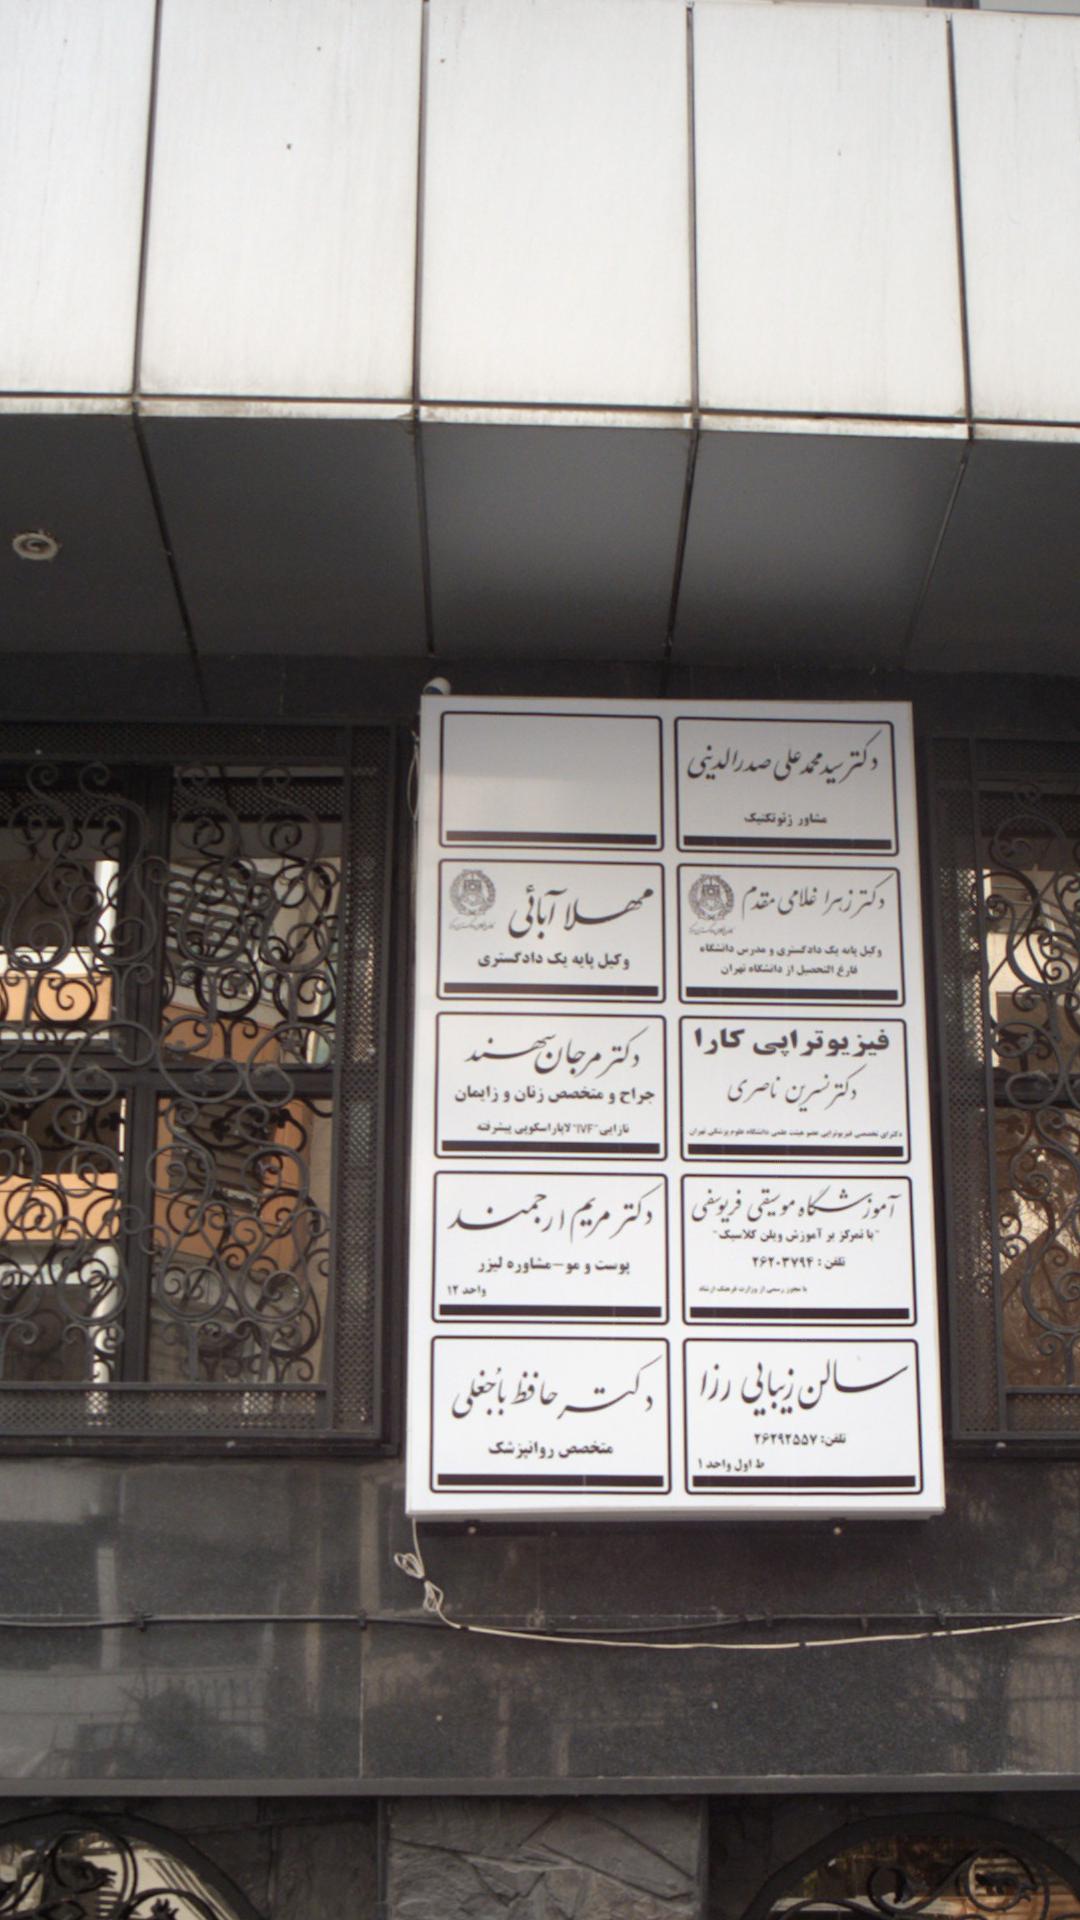 دکتر سید محمد علی صدرالدینی
مشاور ژئوتکنیک
دکتر زهرا غلامی مقدم
وکیل پایه یک دادگستری و مدرس دانشگاه
فارغ التحصیل از دانشگاه تهران
مهلا آبائی
وکیل پایه یک دادگستری
فیزیوتراپی کارا
دکتر نسرین ناصری
دکترای تخصصی فیزیوتراپی عضو هیئت علمی دانشگاه علوم پزشکی تهران
دکتر مرجان سهند
جراح و متخصص زنان و زایمان
نازایی "IVF" لاپاراسکوپی پیشرفته
آموزشگاه موسیقی فریوسفی
"با تمرکز بر آموزش ویلن کلاسیک"
تلفن : ۲۶۲۰۳۷۹۴
با مجوز رسمی از وزارت فرهنگ ارشاد
دکتر مریم ارجمند
پوست و مو - مشاوره لیزر
واحد ۱۲
سالن زیبایی رزا
تلفن: ۲۶۲۹۲۵۵۷
ط اول واحد ۱
دکتر حافظ باجُغلی
متخصص روانپزشک